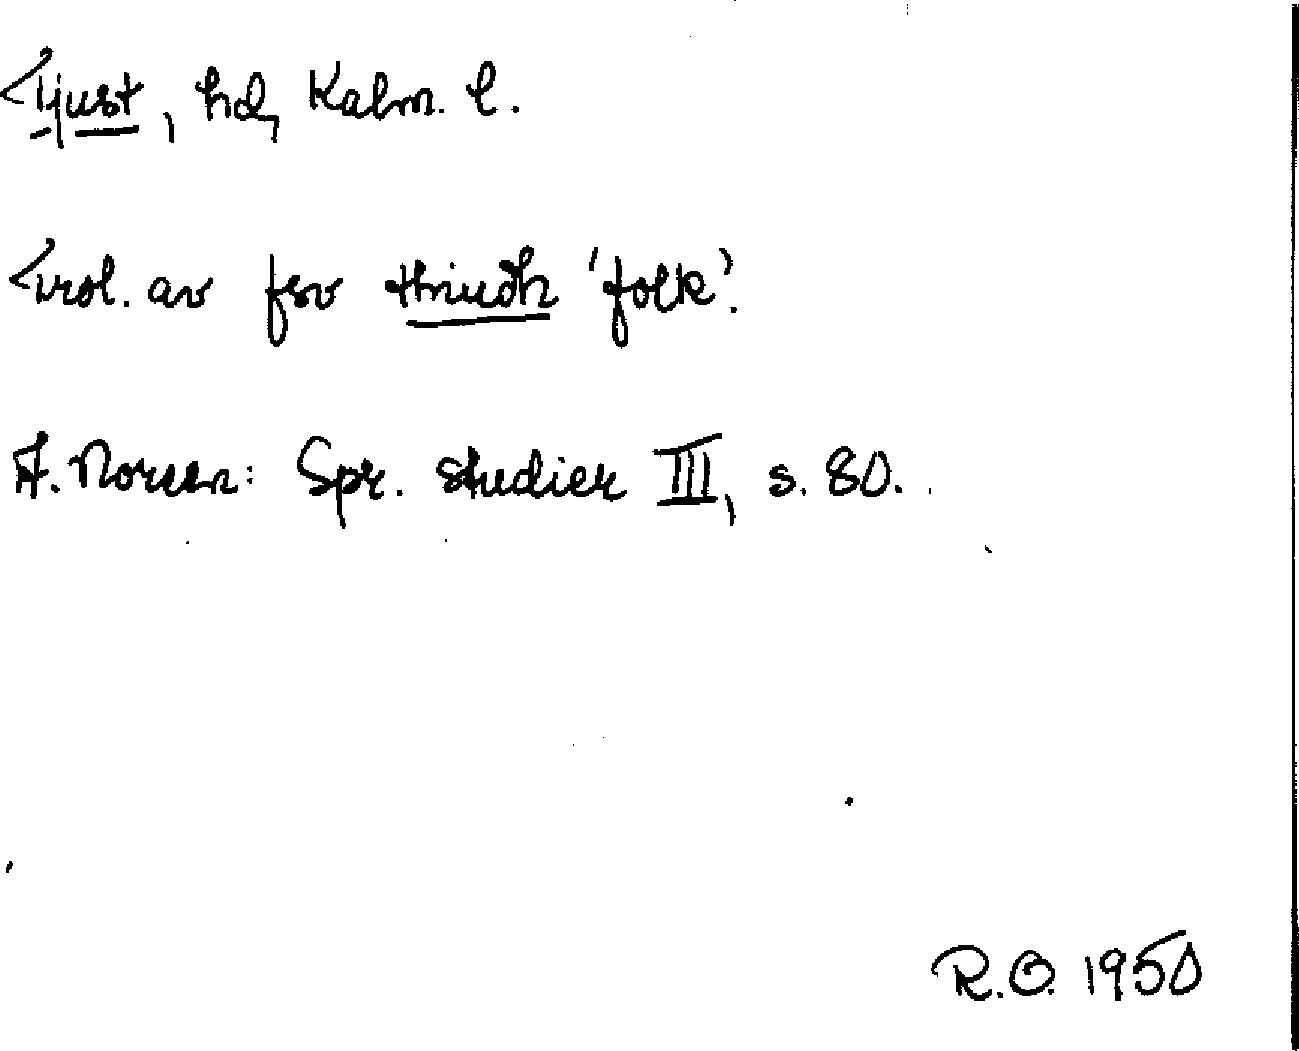 Tjust, hd, Kalm. l.
Trol. av fsv thiudh 'folk'.
A. Noreen: Spr. studier III, s. 80.
R.O. 1950